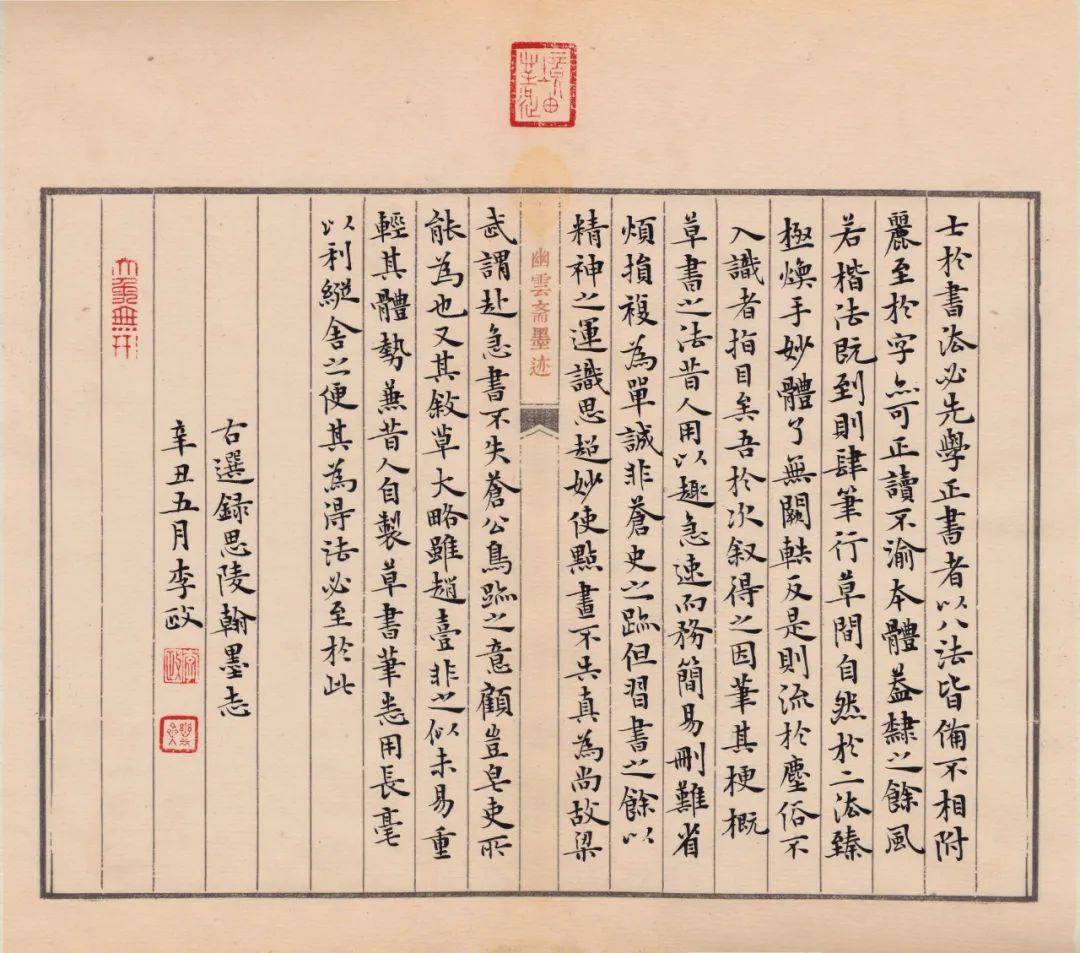 士於書法必先學正書者以八法皆備不相附
麗至於字亦可正讀不渝本體蓋隸之餘風
若楷法既到則肆筆行草間自然於二法臻
極煥手妙體了無闕軼反是則流於塵俗不
入識者指目矣吾於次叙得之因筆其梗概
草書之法昔人用以趣急速而務簡易刪難省
煩損複為單誠非蒼史之跡但習書之餘以
精神之運識思超妙使點畫不失真為尚故梁
幽雲斎墨迹
武謂赴急書不失蒼公鳥跡之意顧豈皂吏所
能為也又其敘草大略雖趙壹非之似未易重
輕其體勢兼昔人自製草書筆悉用長毫
以利縱舍之便其為得法必至於此
右選録思陵翰墨志
辛丑五月李政
李政
大象無形